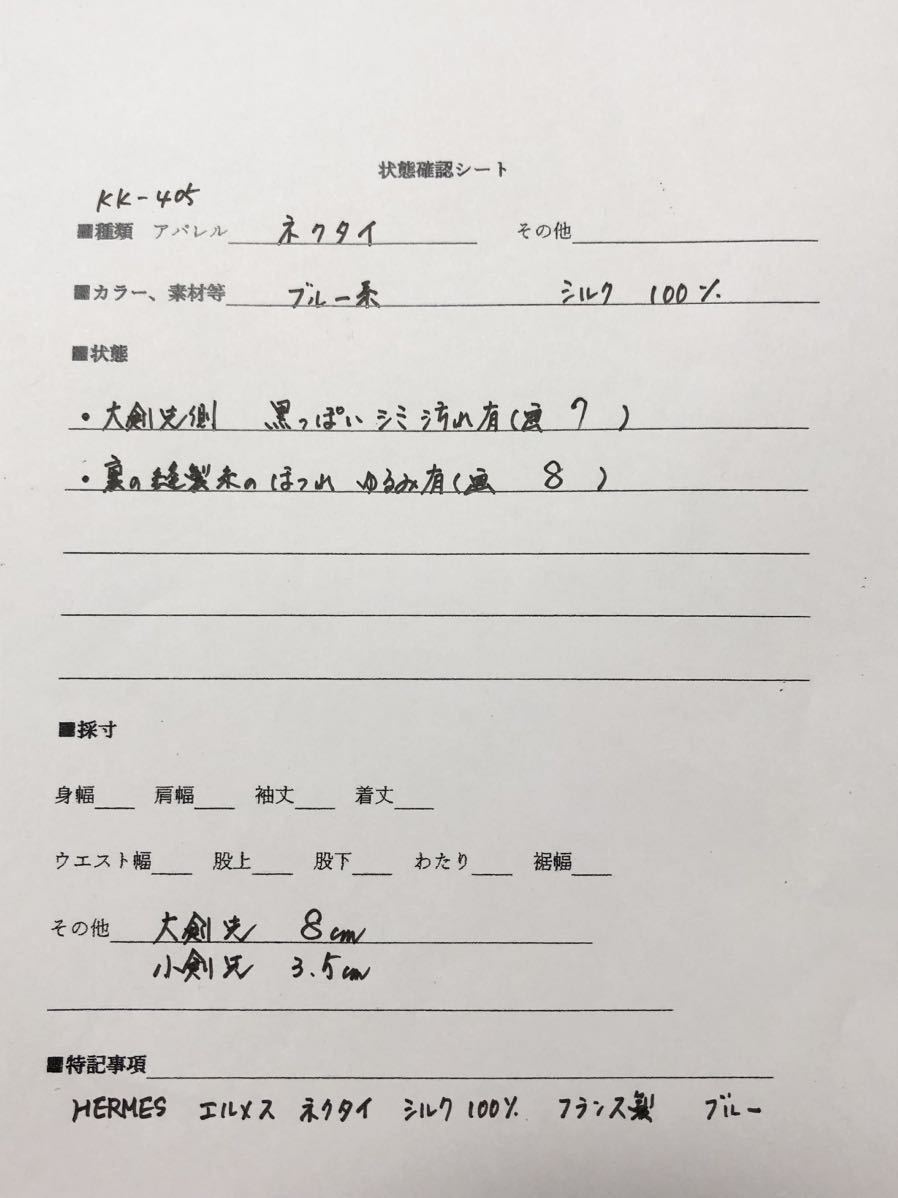 状態確認シート
KK-405
■種類 アパレル ネクタイ その他
■カラー、素材等 ブルー系 シルク 100%
■状態
・大剣先側 黒っぽいシミ汚れ有(画 7 )
・裏の縫製糸のほつれ ゆるみ有(画 8 )
■採寸
身幅 肩幅 袖丈 着丈
ウエスト幅 股上 股下 わたり 裾幅
その他 大剣先 8cm
小剣先 3.5cm
■特記事項
HERMES エルメス ネクタイ シルク100% フランス製 ブルー